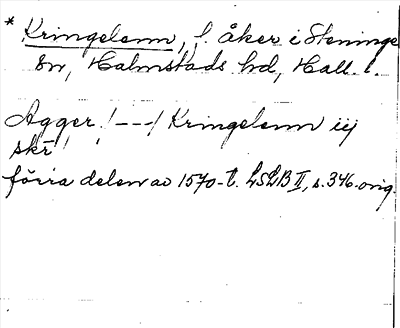 * Kringelenn, f. åker i Steninge
sn, Halmstads hd, Hall. l.
Agger /---/ Kringelenn iij
skr
förra delen av 1570-t. LSLB II, s. 346. orig.